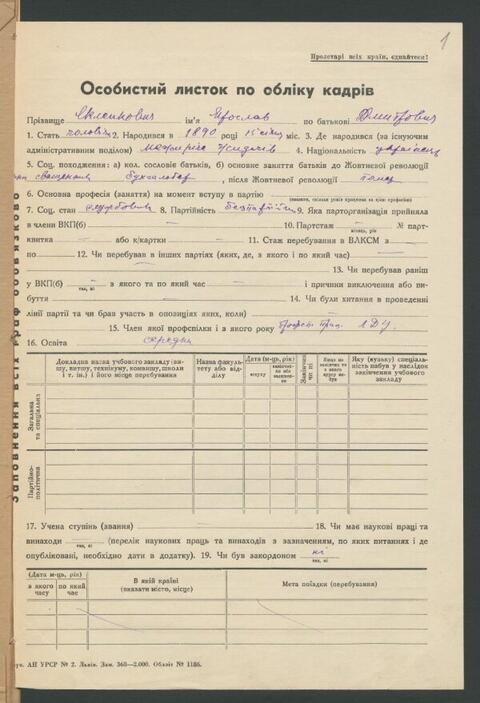 1
Пролетарі всіх країн, єднайтеся!
Особистий листок по обліку кадрів
Прізвище ім'я Ярослав по батькові Дмитрович
1. Стать 2. Народився в 1890 році 15 січ. міс. 3. Де народився (за існуючим
адміністративним поділом) 4. Національність українець
5. Соц. походження: а) кол. сословіє батьків, б) основне заняття батьків до Жовтневої революції
бухгальтер, після Жовтневої революції
6. Основна професія (заняття) на момент вступу в партію
7. Соц. стан службовик 8. Партійність безпартійн. 9. Яка парторганізація прийняла
в члени ВКП(б) — 10. Партстаж — № парт-
місяць, рік
квитка — або к/картки — 11. Стаж перебування в ВЛКСМ з
по — 12. Чи перебував в інших партіях (яких, де, з якого і по який час) —
13. Чи перебував раніш
у ВКП(б) — з якого та по який час — і причини виключення або ви-
так, ні
буття 14. Чи були хитання в проведенні
лінії партії та чи брав участь в опозиціях яких, коли)
15. Член якої профспілки і з якого року ЛДУ.
16. Освіта середня
Заповнення всіх граф обов'язково
Докладна назва учбового закладу (ви-
шу, витшу, технікуму, комвишу, школи
і т. ін.) і його місце перебування
Назва факуль-
тету або від-
ділу
Дата (м-ць, рік)
вступу
закінчен-
ня або
залишен-
ня
Закінчив
чи ні
Якщо не
закінчив то
з якого
курсу ви-
був
Яку (вузьку) спеціаль-
ність набув у наслідок
закінчення учбового
закладу
Загальна
та спеціальна
Партійно-
політична
17. Учена ступінь (звання) 18. Чи має наукові праці та
винаходи — (перелік наукових праць та винаходів з зазначенням, по яких питаннях і де
так, ні
опубліковані, необхідно дати в додатку). 19. Чи був закордоном ні
так, ні
(Дата м-ць, рік)
з якого
часу
по який
час
В якій країні
(вказати місто, місце)
Мета поїздки (перебування)
АН УРСР № 2. Львів. Зам. 360—2.000. Обліт № 1186.